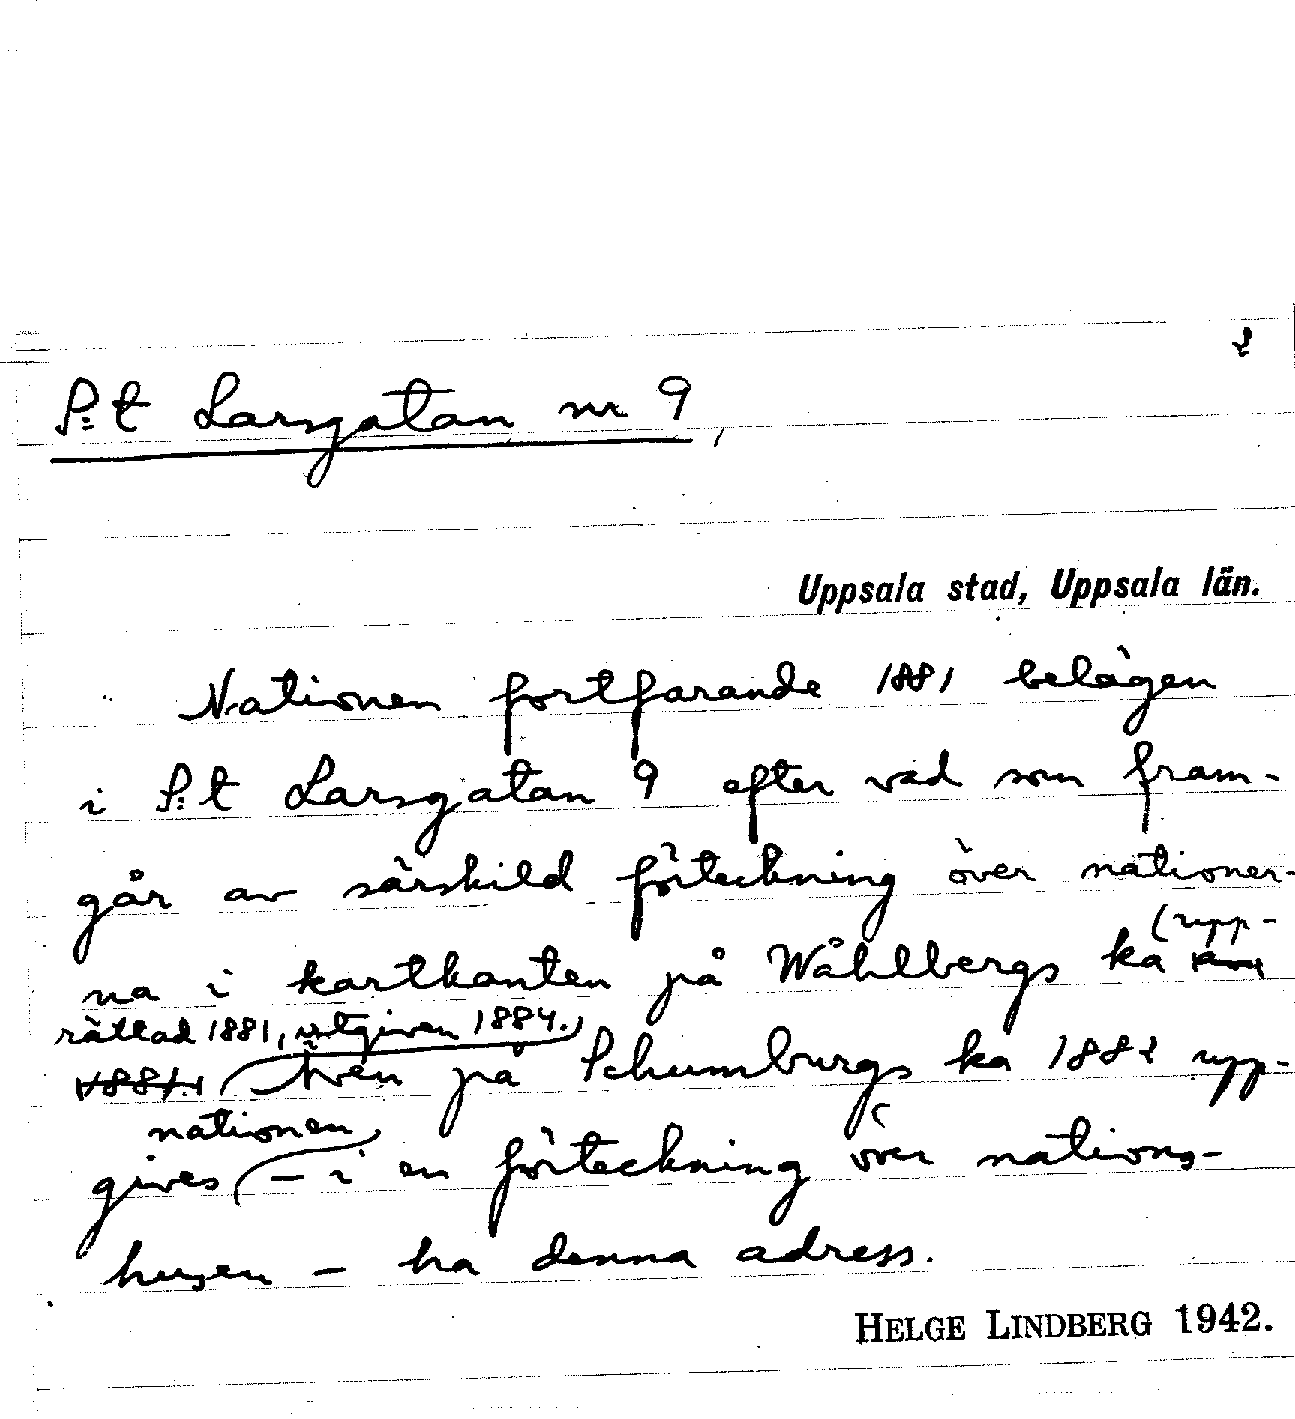 2
S:t Larsgatan nr 9,
Uppsala stad, Uppsala län.
Nationen fortfarande 1881 belägen
i S:t Larsgatan 9 efter vad som fram-
går av särskild förteckning över nationer-
na i kartkanten på Wåhlbergs ka (upp-
rättad 1881, utgiven 1884.)
1881. Även på Schumburgs ka 1882 upp-
nationen
gives – i en förteckning över nations-
husen – ha denna adress.
HELGE LINDBERG 1942.